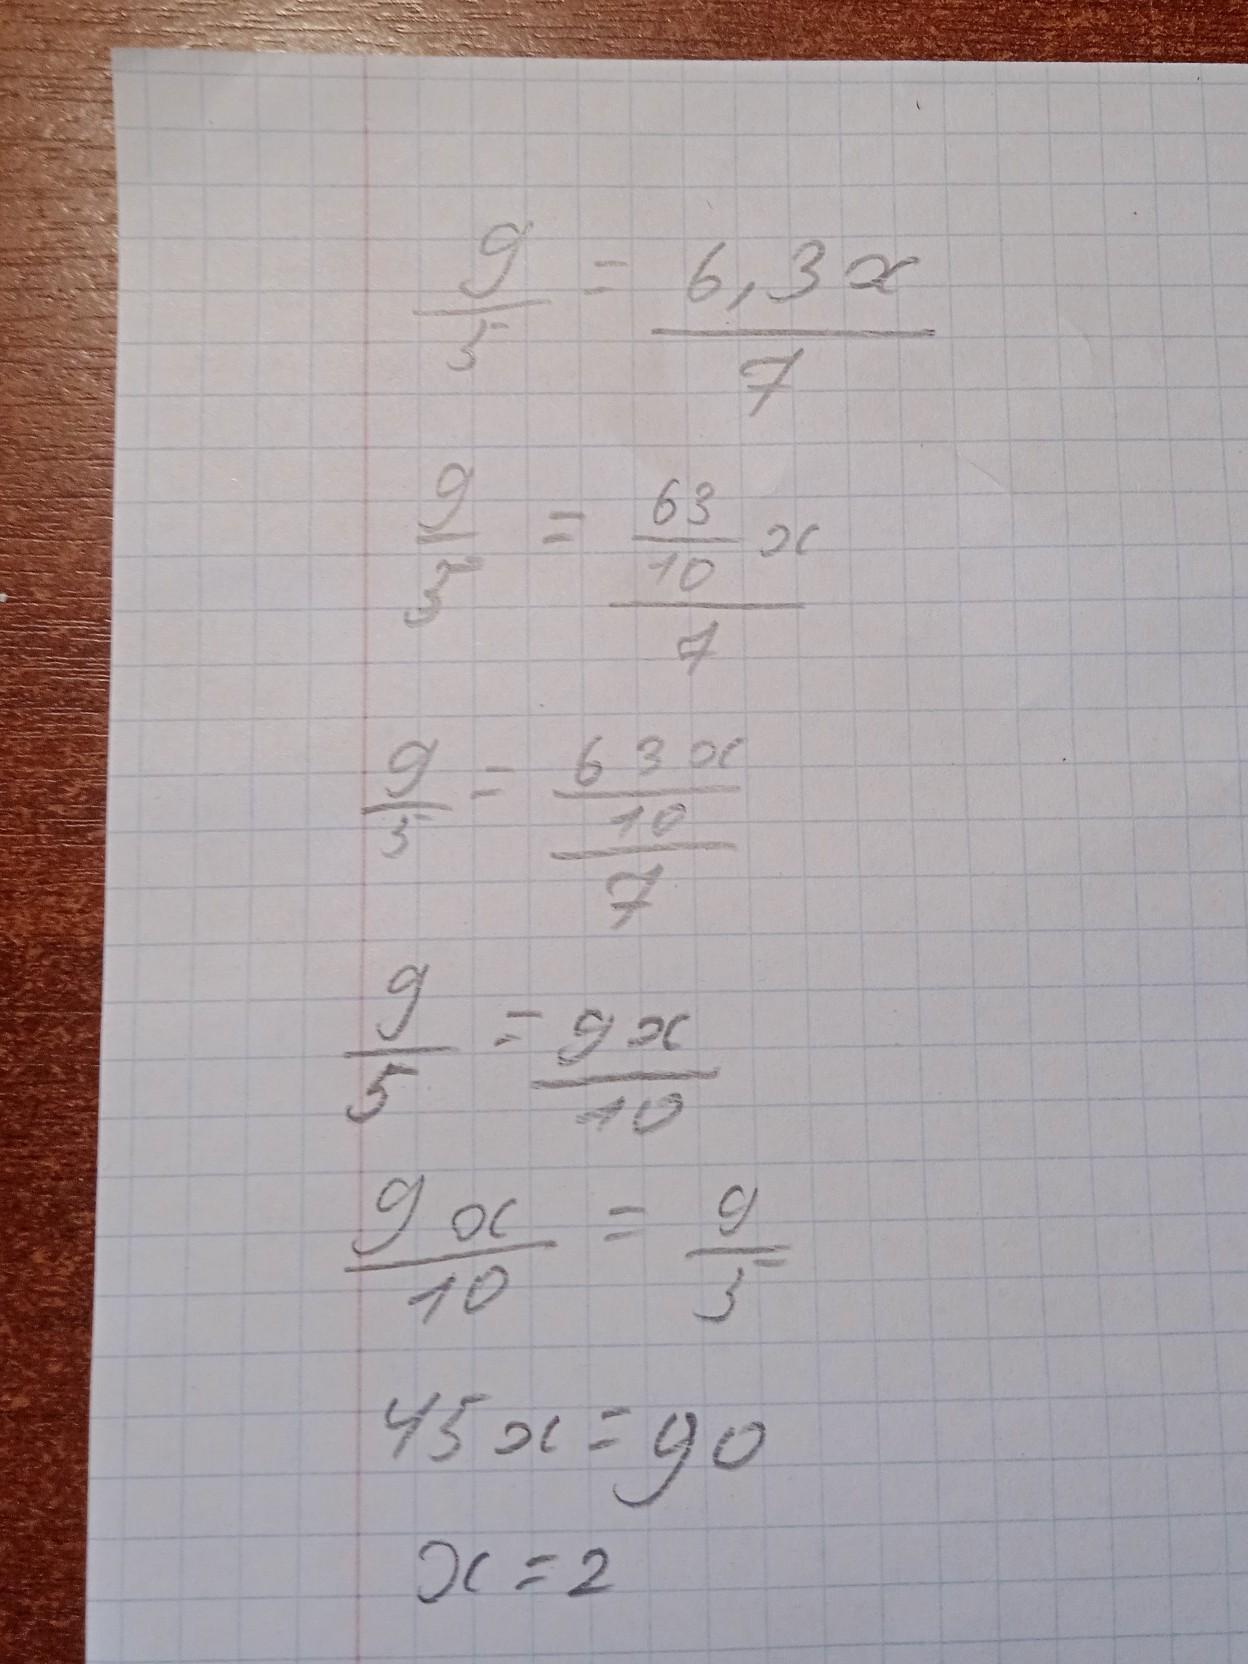 9/5 = 6,3x/7
9/5 = 63/10 x/7
9/5 = 63x/10/7
9/5 = 9x/10
9x/10 = 9/5
45x = 90
x = 2